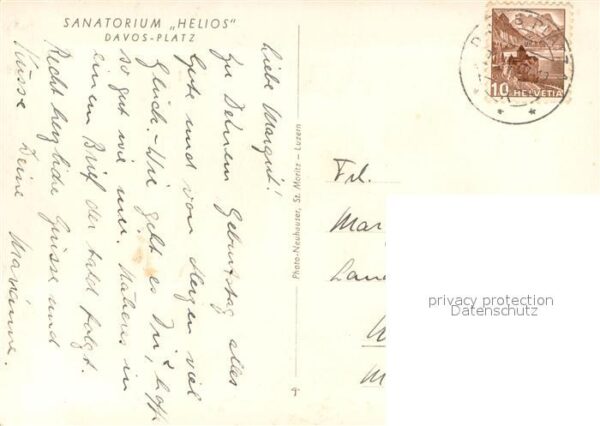 SANATORIUM „HELIOS"
DAVOS-PLATZ
Liebe Margrit!
Zu Deinem Geburtstag alles
Gute und von Herzen viel
Glück. - Wie geht es Dir, hoff.
so gut wie mir. Näheres in
einem Brief der bald folgt.
Recht herzliche Grüsse und
Küsse Deine Marianne.
Photo-Neuhauser, St. Moritz - Luzern
10 HELVETIA
DAVOS-PLATZ
Frl.
Mar
Lan
privacy protection
Datenschutz